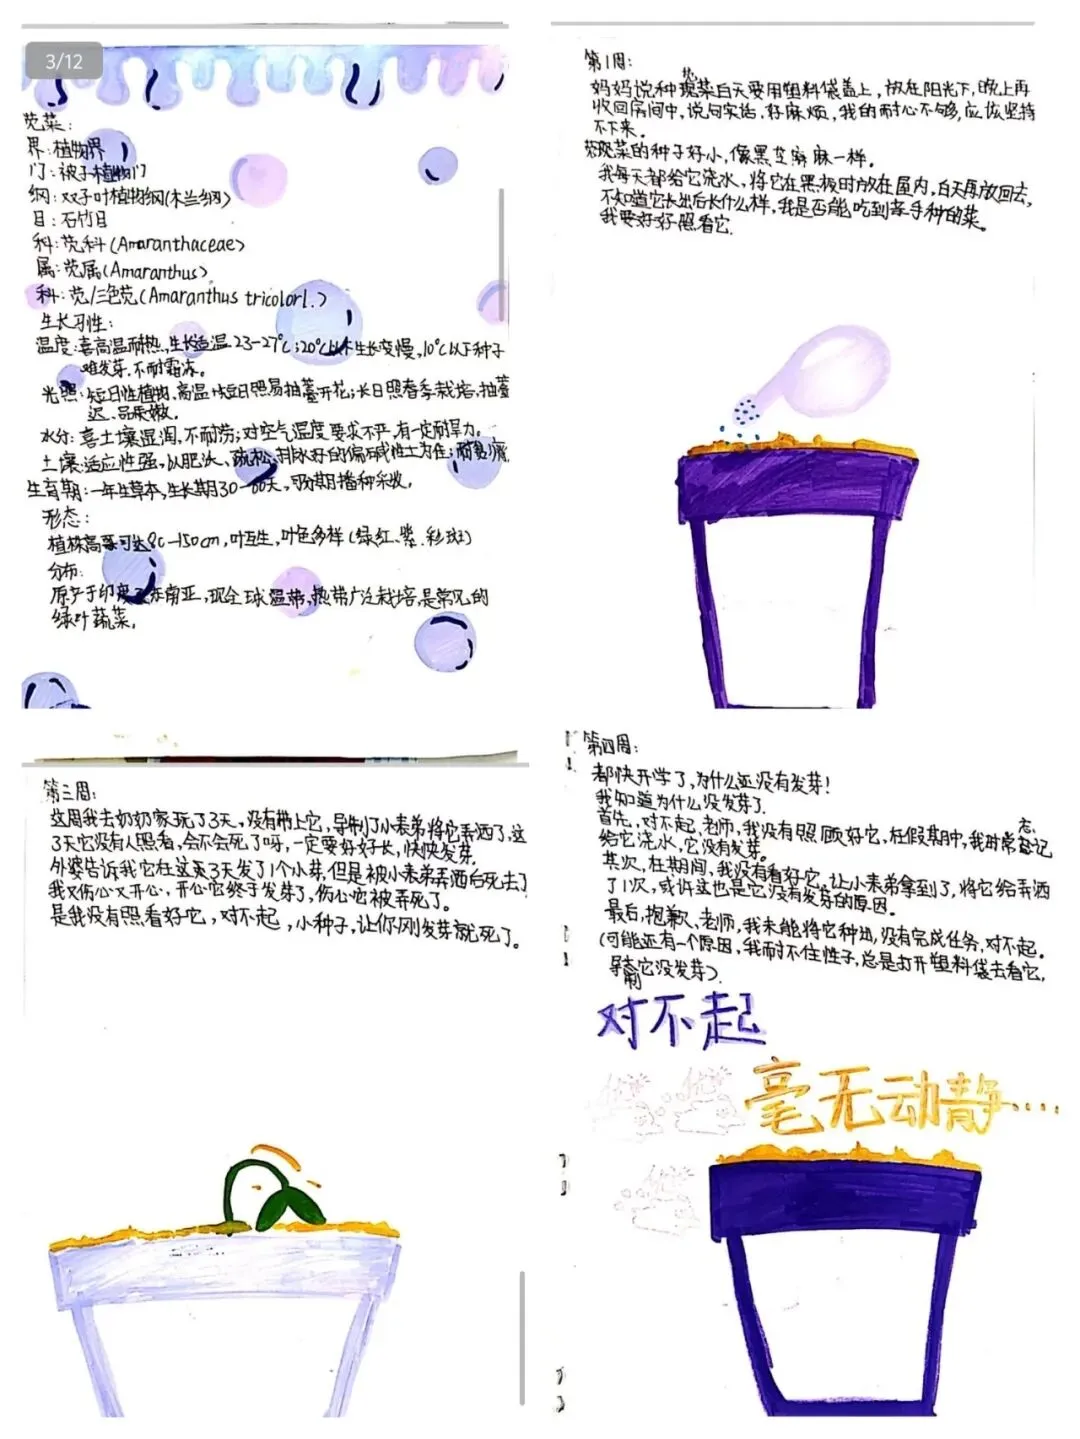 3/12
苋菜：
界：植物界
门：被子植物门
纲：双子叶植物纲(木兰纲)
目：石竹目
科：苋科(Amaranthaceae)
属：苋属(Amaranthus)
科：苋/三色苋(Amaranthus tricolorl.)
生长习性：
温度：喜高温耐热，生长适温23-27℃；20℃以下生长变慢，10℃以下种子
难发芽，不耐霜冻。
光照：短日性植物，高温短日照易抽薹开花；长日照春季栽培，抽薹
迟、品质嫩。
水分：喜土壤湿润，不耐涝；对空气湿度要求不严，有一定耐旱力。
土壤：适应性强，以肥沃、疏松、排水好的偏碱性土为佳；
生育期：一年生草本，生长期30-60天，可分期播种采收。
形态：
植株高可达80-150cm，叶互生，叶色多样(绿、红、紫、彩斑)
分布：
原产于印度及东南亚，现全球温带、热带广泛栽培，是常见的
绿叶蔬菜。
第1周：
妈妈说种苋菜白天要用塑料袋盖上，放在阳光下，晚上再
收回房间中，说句实话，好麻烦，我的耐心不够，应该坚持
不下来。
苋菜的种子好小，像黑芝麻麻一样。
我每天都给它浇水，将它在黑板时放在屋内，白天再放回去，
不知道它长出后长什么样，我是否能吃到亲手种的菜。
我要好好照看它.
第三周：
这周我去奶奶家玩了3天，没有带上它，导制了小表弟将它弄洒了，这
3天它没有人照看，会不会死了呀，一定要好好长，快快发芽.
外婆告诉我它在这第3天发了1个小芽，但是被小表弟弄洒后死去了
我又伤心又开心，开心它终于发芽了，伤心它被弄死了。
是我没有照看好它，对不起，小种子，让你刚发芽就死了。
第四周：
都快开学了，为什么还没有发芽！
我知道为什么没发芽了.
首先，对不起，老师，我没有照顾好它，在假期中，我时常忘记
给它浇水，它没有发芽。
其次，在期间，我没有看好它，让小表弟拿到了，将它给弄洒
了1次，或许这也是它没有发芽的原因。
最后，抱歉、老师，我未能将它种出，没有完成任务，对不起。
(可能还有一个原因，我耐不住性子，总是打开塑料袋去看它，
导制它没发芽).
对不起
毫无动静....